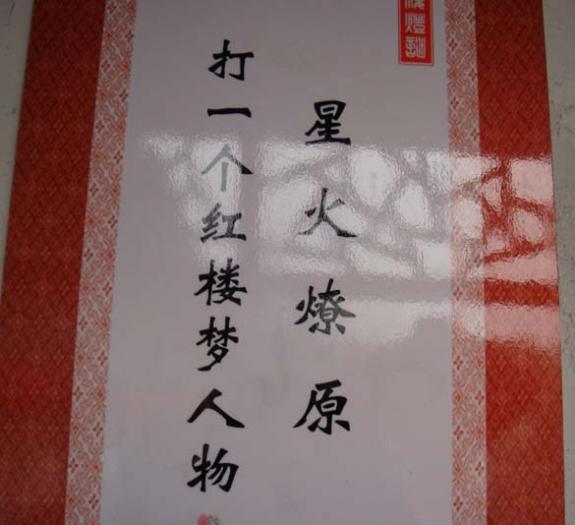 猜灯謎
星火燎原
打一个红楼梦人物